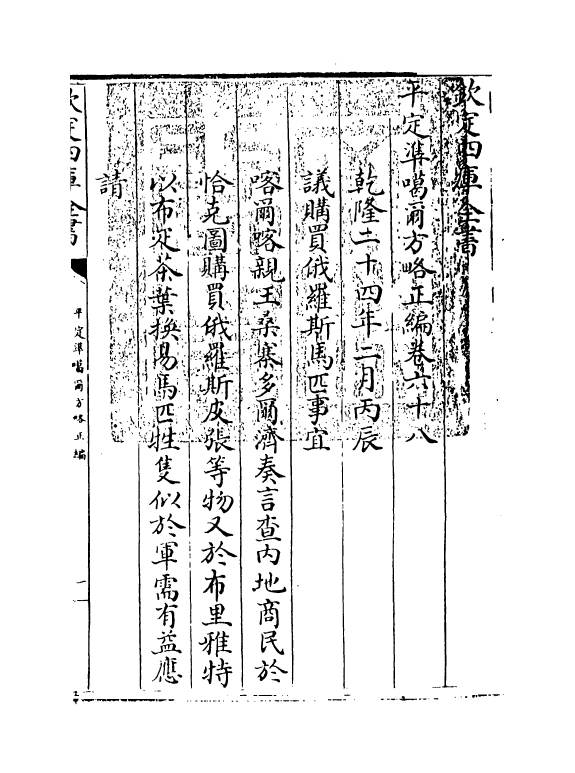 欽定四庫全書
平定準噶爾方略正編卷六十八
乾隆二十四年二月丙辰
議購買俄羅斯馬匹事宜
喀爾喀親王桑寨多爾濟奏言查内地商民於
恰克圖購買俄羅斯皮張等物又於布里雅特
以布疋茶葉換易馬匹牲隻似於軍需有益應
請
欽定四庫全書
平定準噶爾方略正編
一